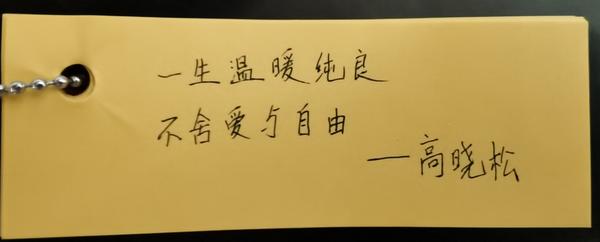 一生温暖纯良
不舍爱与自由
——高晓松